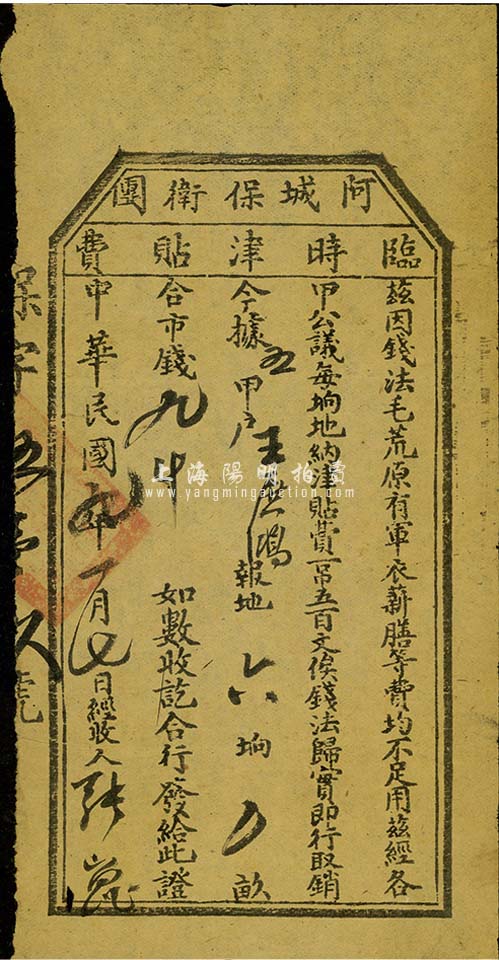 阿城保衛團
臨時津貼費
茲因錢法毛荒原有軍衣薪膳等費均不足用茲經各
甲公議每垧地納津貼費一吊五百文俟錢法歸實即行取銷
今據五甲戶王 鴻報地六垧 畝
合市錢九吊 如數收訖合行發給此證
中華民國九年一月七日經收人張
保字五 號
上海陽明拍賣
www.yangmingauction.com